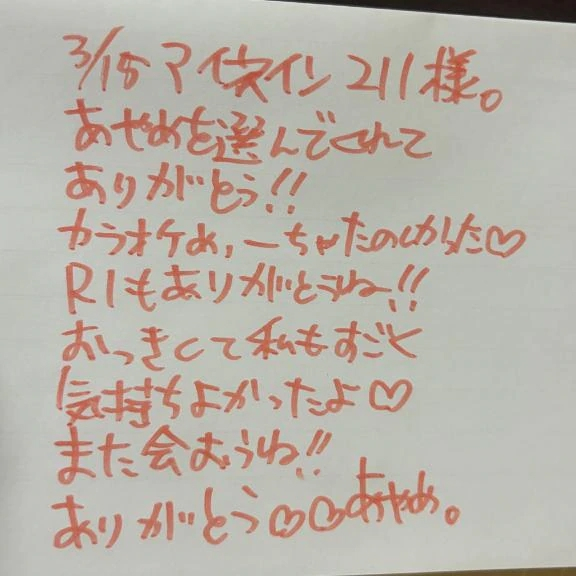 3/15 アイネイン 211様。
あやめを選んでくれて
ありがとう!!
カラオケめっちゃたのしかった♡
R1もありがとうね!!
おっきくて私もすごく
気持ちよかったよ♡
また会おうね!!
ありがとう♡♡あやめ。